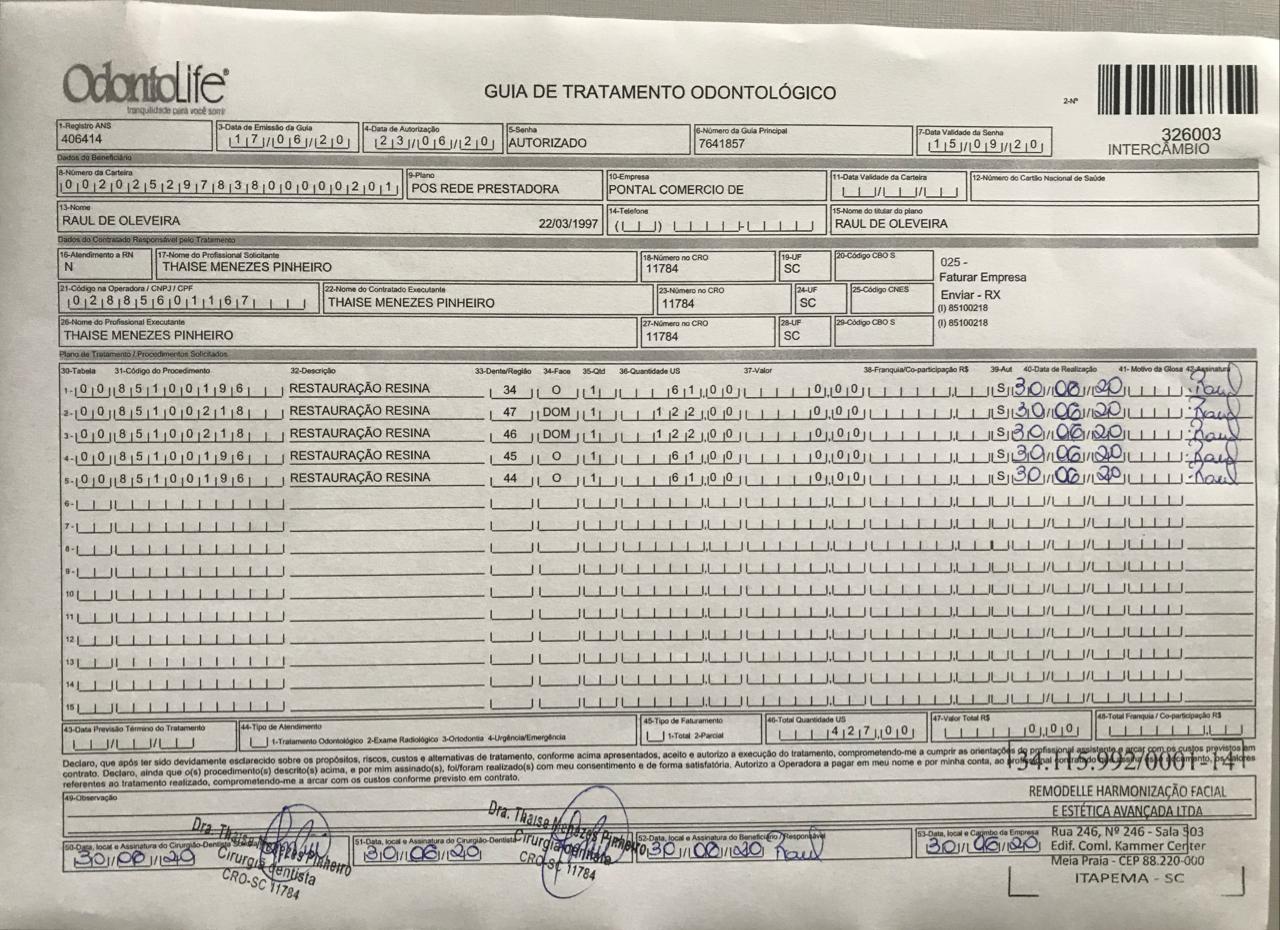 OdontoLife®
tranquilidade para você sorrir
GUIA DE TRATAMENTO ODONTOLÓGICO
2-Nº
326003
INTERCÂMBIO
1-Registro ANS 3-Data de Emissão da Guia 4-Data de Autorização 5-Senha 6-Número da Guia Principal 7-Data Validade da Senha
406414 17/06/20 23/06/20 AUTORIZADO 7641857 15/09/20
Dados do Beneficiário
8-Número da Carteira 9-Plano 10-Empresa 11-Data Validade da Carteira 12-Número do Cartão Nacional de Saúde
00202529783800000201 POS REDE PRESTADORA PONTAL COMERCIO DE
13-Nome 14-Telefone 15-Nome do titular do plano
RAUL DE OLEVEIRA 22/03/1997 RAUL DE OLEVEIRA
Dados do Contratado Responsável pelo Tratamento
16-Atendimento a RN 17-Nome do Profissional Solicitante 18-Número no CRO 19-UF 20-Código CBO S
N THAISE MENEZES PINHEIRO 11784 SC
025 -
Faturar Empresa
Enviar - RX
(I) 85100218
(I) 85100218
21-Código na Operadora / CNPJ / CPF 22-Nome do Contratado Executante 23-Número no CRO 24-UF 25-Código CNES
02885601167 THAISE MENEZES PINHEIRO 11784 SC
26-Nome do Profissional Executante 27-Número no CRO 28-UF 29-Código CBO S
THAISE MENEZES PINHEIRO 11784 SC
Plano de Tratamento / Procedimentos Solicitados
30-Tabela 31-Código do Procedimento 32-Descrição 33-Dente/Região 34-Face 35-Qtd 36-Quantidade US 37-Valor 38-Franquia/Co-participação R$ 39-Aut 40-Data de Realização 41- Motivo da Glosa 42-Assinatura
1- 00 85100196 RESTAURAÇÃO RESINA 34 O 1 61,00 0,00 S 30/06/20 Raul
2- 00 85100218 RESTAURAÇÃO RESINA 47 DOM 1 122,00 0,00 S 30/06/20 Raul
3- 00 85100218 RESTAURAÇÃO RESINA 46 DOM 1 122,00 0,00 S 30/06/20 Raul
4- 00 85100196 RESTAURAÇÃO RESINA 45 O 1 61,00 0,00 S 30/06/20 Raul
5- 00 85100196 RESTAURAÇÃO RESINA 44 O 1 61,00 0,00 S 30/06/20 Raul
6-
7-
8-
9-
10
11
12
13
14
15
43-Data Previsão Término do Tratamento 44-Tipo de Atendimento 45-Tipo de Faturamento 46-Total Quantidade US 47-Valor Total R$ 48-Total Franquia / Co-participação R$
1-Tratamento Odontológico 2-Exame Radiológico 3-Ortodontia 4-Urgência/Emergência 1-Total 2-Parcial 427,00 0,00
Declaro, que após ter sido devidamente esclarecido sobre os propósitos, riscos, custos e alternativas de tratamento, conforme acima apresentados, aceito e autorizo a execução do tratamento, comprometendo-me a cumprir as orientações do profissional assistente e arcar com os custos previstos em
contrato. Declaro, ainda que o(s) procedimento(s) descrito(s) acima, e por mim assinado(s), foi/foram realizado(s) com meu consentimento e de forma satisfatória. Autorizo a Operadora a pagar em meu nome e por minha conta, ao
referentes ao tratamento realizado, comprometendo-me a arcar com os custos conforme previsto em contrato.
34.115.992/0001-14
49-Observação
REMODELLE HARMONIZAÇÃO FACIAL
E ESTÉTICA AVANÇADA LTDA
Rua 246, Nº 246 - Sala 503
Edif. Coml. Kammer Center
Meia Praia - CEP 88.220-000
ITAPEMA - SC
50-Data, local e Assinatura do Cirurgião-Dentista 51-Data, local e Assinatura do Cirurgião-Dentista 52-Data, local e Assinatura do Beneficiário / Responsável 53-Data, local e Carimbo da Empresa
30/06/20 30/06/20 30/06/20 Raul 30/06/20
Dra. Thaise Menezes Pinheiro
Cirurgiã dentista
CRO-SC 11784
Dra. Thaise Menezes Pinheiro
Cirurgiã dentista
CRO-SC 11784